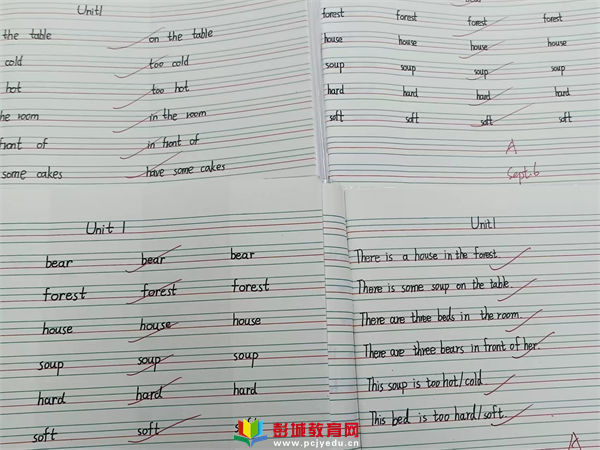 Unit1
the table on the table
cold too cold
hot too hot
the room in the room
front of in front of
some cakes have some cakes
forest forest forest forest
house house house house
soup soup soup soup
hard hard hard hard
soft soft soft soft
A
Sept.6
Unit 1
bear bear bear
forest forest forest
house house house
soup soup soup
hard hard hard
soft soft
Unit1
There is a house in the forest.
There is some soup on the table.
There are three beds in the room.
There are three bears in front of her.
This soup is too hot/cold
This bed is too hard/soft.
A
彭城教育网
www.pcjyedu.cn